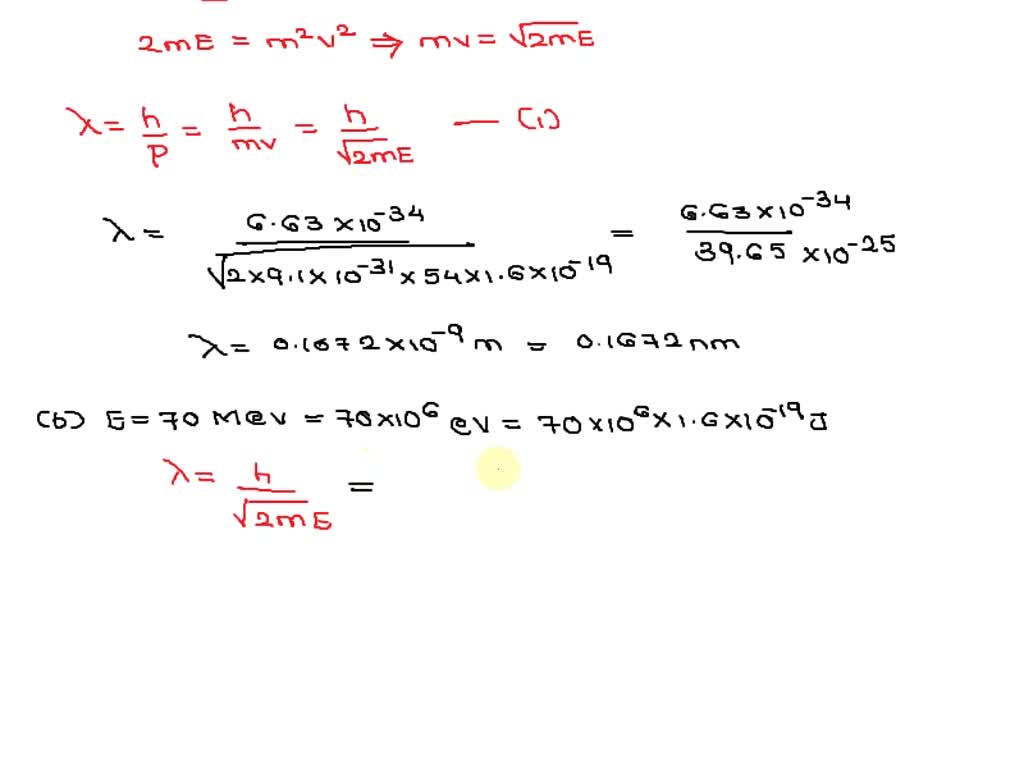 2mE = m²v² ⇒ mv = √2mE
λ = h/p = h/mv = h/√2mE — (1)
λ = 6.63×10⁻³⁴/√2×9.1×10⁻³¹×54×1.6×10⁻¹⁹ = 6.63×10⁻³⁴/39.65×10⁻²⁵
λ = 0.1672×10⁻⁹ m = 0.1672 nm
(b) E = 70 MeV = 70×10⁶ eV = 70×10⁶×1.6×10⁻¹⁹ J
λ = h/√2mE =